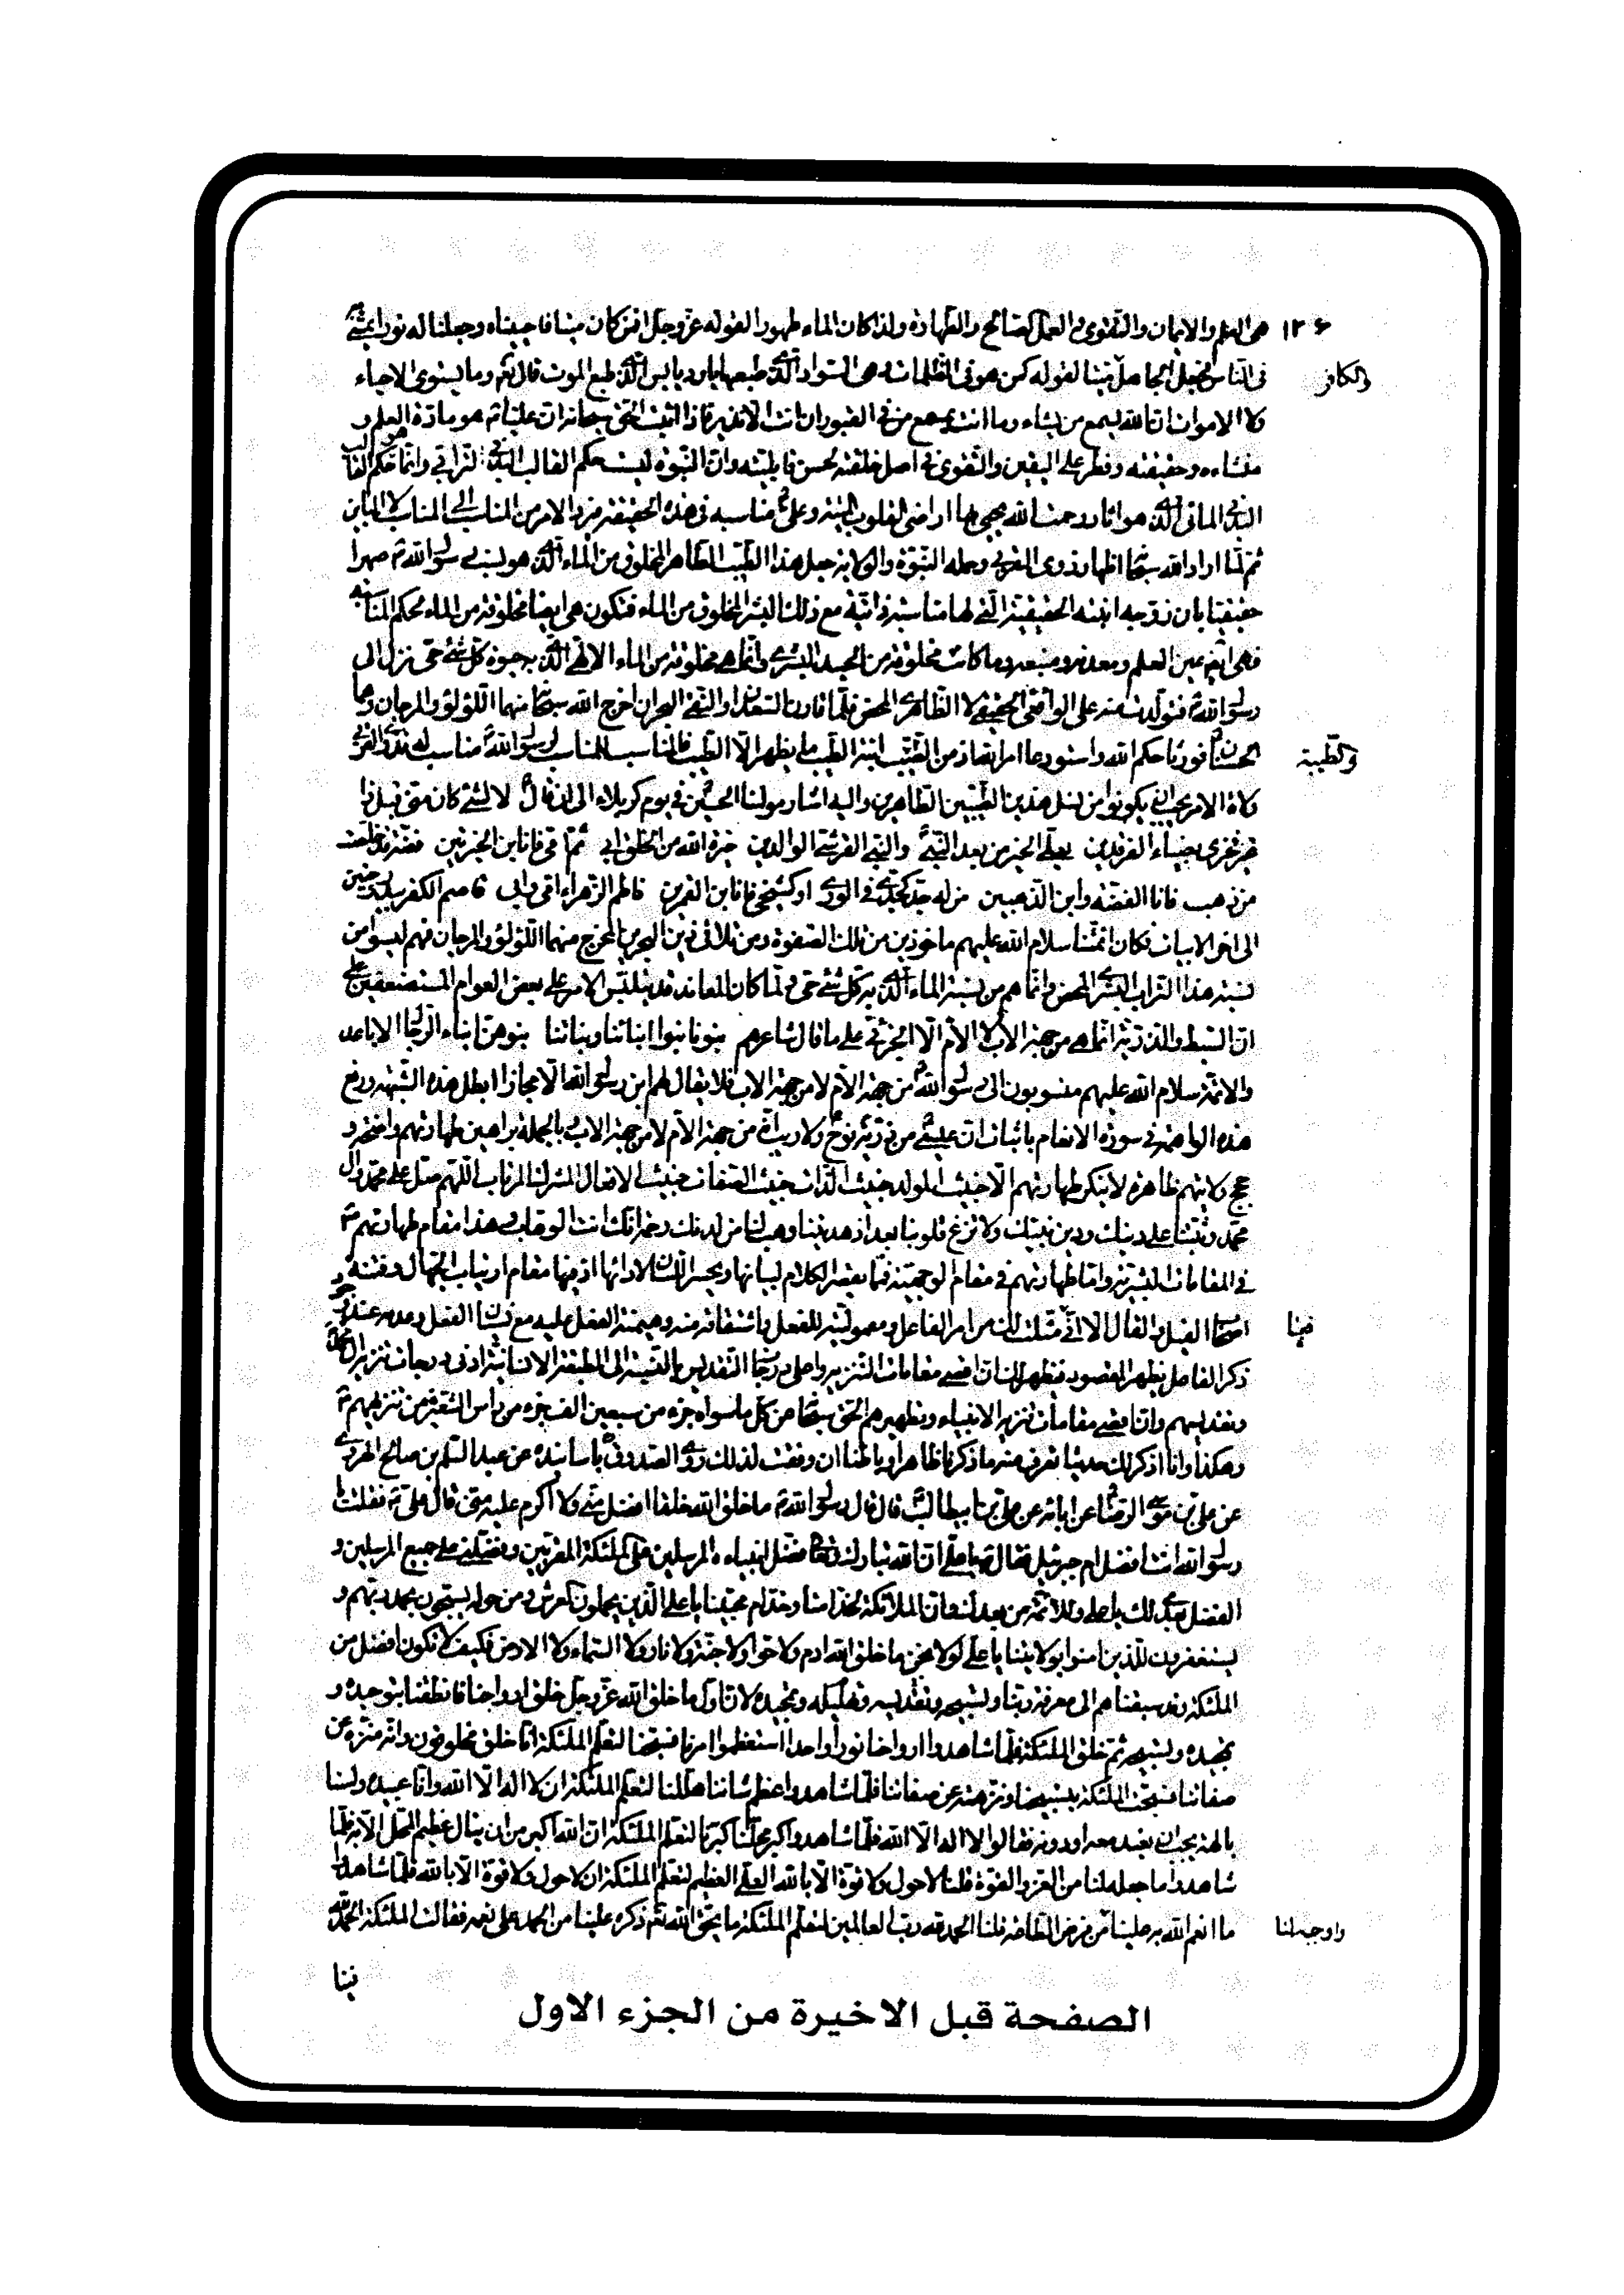 ١٢۶ هى العلم والايمان والتقوى والعمل الصالح والطهارة ولذا كان الماء طهورا لقوله عز وجل افمن كان ميتا فاحييناه وجعلنا له نورا يمشى به
والكافر فى الناس فجعل الجاهل ميتا لقوله كمن هو فى الظلمات هى السواد الذى طبعها بارد يابس الذى طبع الموت قال تعالى وما يستوى الاحياء
ولا الاموات ان الله يسمع من يشاء وما انت بمسمع من فى القبور ان انت الا نذير فاذا اثبت ان عليا هو مادة العلم و
منشاءه وحقيقته وفطر على اليقين والتقوى فى اصل خلقته لحسن قابليته وان النبوة ليست حكم القالب البدنى الترابى وانما حكم القالب
البدنى المائى الذى هو اثار رحمت الله يحيى بها اراضى القلوب الميتة وعلى مناسبه فى هذه الحقيقة الامر من المناسب الى المناسب لا المباين
ثم لما اراد الله سبحانه اظهار ذوى القربى وحمله النبوة والولاية جعل هذا الطيب الطاهر المخلوق من الماء الذى هو لرسول الله صهرا
حقيقيا بان زوجه ابنته الحقيقية التى لها مناسبة ذاتية مع ذلك البشر المخلوق من الماء فتكون هى ايضا مخلوقة من الماء بحكم المناسبة
فهى عين العلم ومعدنه ومنبعه وما كانت مخلوقة من الجسد البشرى وانما هى مخلوقة من الماء الالهى الذى به حيوة كل شئ حتى نزل الى
رسول الله فتولدت منه على الواقعى الحقيقى لا الظاهرى المحض فلما قارنا السعدان والتقى البحران اخرج الله سبحانه منهما اللؤلؤ والمرجان وهما
والطيبة الحسنان فورثا حكم الله واستودعا من الطيب ابنة الطيب ما يظهر الا الطيب فالمناسب للمناسب لرسول الله مناسب له فذوى القربى
ولاة الامر يجب ان يكونوا من نسل هذين الطيبين الطاهرين واليه اشار مولنا الحسين فى يوم كربلاء الى ان قال لا لشئ كان منى قبل ذا
غير فخرى بضياء الفرقدين بعلى الخير من بعد النبى والنبى القرشى الوالدين خيرة الله من الخلق ابى ثم امى فانا ابن الخيرتين فضة قد خلصت
من ذهب فانا الفضة وابن الذهبين من له جد كجدى فى الورى او كشيخى فانا ابن القمرين فاطم الزهراء امى وابى قاصم الكفر ببدر وحنين
الى اخر الابيات فكان ائمتنا سلام الله عليهم ماخوذين من تلك الصفوة ومن تلاقى ذين البحرين المخرج منهما اللؤلؤ والمرجان فهم ليسوا من
نسبة هذا التراب البشرى المحض وانما هم من نسبة الماء الذى به كل شئ حى ولما كان المعاند قد يلبس الامر على بعض العوام المستضعفين على
ان السبط والذرية انما هى من جهة الاب لا الام على ما قال شاعرهم بنونا بنوا ابنائنا وبناتنا بنوهن ابناء الرجال الاباعد
والائمة سلام الله عليهم منسوبون الى رسول الله من جهة الام لا من جهة الاب فلا يقال لهم ابن رسول الله الا مجازا ابطل هذه الشبهة ورفع
هذه الواهمة فى سورة الانعام باثبات ان عيسى من ذرية نوح ولا ريب انه من جهة الام لا من جهة الاب وبالجملة براهين طهارتهم واضحة و
حجج ولايتهم ظاهرة لا ينكر طهارتهم الا خبيث المولد خبيث الذات خبيث الصفات خبيث الافعال المشرك المرتاب اللهم صل على محمد وال
محمد وثبتنا على دينك ودين نبيك ولا تزغ قلوبنا بعد اذ هديتنا وهب لنا من لدنك رحمة انك انت الوهاب هذا مقام طهارتهم
فى المقامات البشرية واما طهارتهم فى مقام الوجهية فما يقصر الكلام لبيانها ويحسر اللسان لادائها اذ فيها مقام ارتياب الجهال وفتنة
فيها اصحاب القيل والقال الا انى مثلت لك من امر الفاعل ومعموليته للفعل واشتقاقه منه وهيمنة الفعل عليه مع نسيان الفعل وعدمه عند
ذكر الفاعل يظهر المقصود فيظهر لك ان اقصى مقامات التنزيه واعلى درجات التقديس بالنسبة الى الطبقة الانسانية ادنى درجات تنزيه
وتقديسهم وان اقصى مقامات تنزيه الانبياء وتطهيرهم الحق سبحانه عن كل ما سواه جزء من سبعين الف جزء من راس الشعيرة من تنزيههم
وهكذا وانا اذكر لك حديثا تعرف منه ما ذكرنا ظاهرا وباطنا ان وفقت لذلك روى الصدوق باسانيده عن عبد السلم بن صالح الهروى
عن على بن موسى الرضا عن ابائه عن على بن ابيطالب قال قال رسول الله ما خلق الله خلقا افضل منى ولا اكرم عليه منى قال على فقلت يا
رسول الله انت افضل ام جبرئيل فقال يا على ان الله تبارك وتعالى فضل انبياءه المرسلين على الملئكة المقربين وفضلنى على جميع المرسلين و
الفضل بعدى لك يا على وللائمة من بعدك فان الملائكة لخدامنا وخدام محبينا يا على الذين يحملون العرش ومن حوله يسبحون بحمد ربهم و
يستغفرون للذين امنوا بولايتنا يا على لولا نحن ما خلق الله ادم ولا حوا ولا جنة ولا نار ولا السماء ولا الارض فكيف لا نكون افضل من
الملئكة وقد سبقناهم الى معرفة ربنا وتسبيحه وتقديسه وتهليله وتمجيده لان اول ما خلق الله عز وجل خلق ارواحنا فانطقنا بتوحيده و
تمجيده وتسبيحه ثم خلق الملئكة فلما شاهدوا ارواحنا نورا واحدا استعظموا امرنا فسبحنا لتعلم الملئكة انا خلق مخلوقون وانه منزه عن
صفاتنا فسبحت الملئكة بتسبيحنا ونزهته عن صفاتنا فلما شاهدوا عظم شاننا هللنا لتعلم الملئكة ان لا اله الا الله وانا عبيد ولسنا
بالهة يجب ان نعبد معه او دونه فقالوا لا اله الا الله فلما شاهدوا كبر محلنا كبرنا لتعلم الملئكة ان الله اكبر من ان ينال عظيم المحل الا به فلما
شاهدوا ما جعله لنا من العز والقوة قلنا لا حول ولا قوة الا بالله العلى العظيم لتعلم الملئكة ان لا حول ولا قوة الا بالله فلما شاهدوا
واوجبه لنا ما انعم الله به علينا من فرض الطاعة قلنا الحمد لله رب العالمين لتعلم الملئكة ما يحق الله تعالى ذكره علينا من الحمد على نعمه فقالت الملئكة الحمد لله
فبنا
الصفحة قبل الاخيرة من الجزء الاول